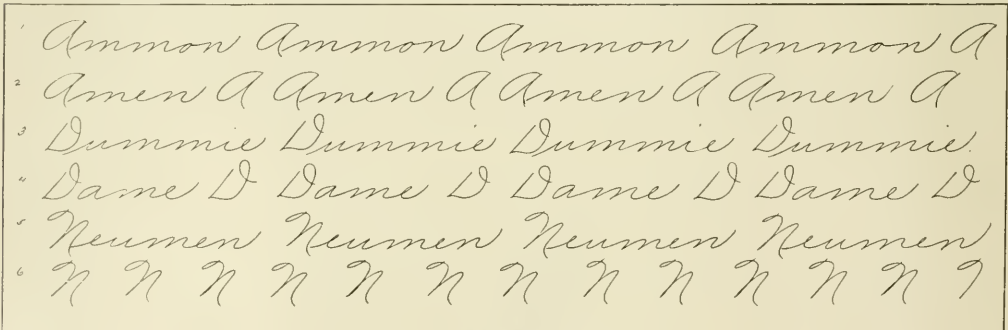 1 Ammon Ammon Ammon Ammon A
2 Amen A Amen A Amen A Amen A
3 Dummie Dummie Dummie Dummie.
4 Dame D Dame D Dame D Dame D
5 Neumen Neumen Neumen Neumen
6 N N N N N N N N N N N N N